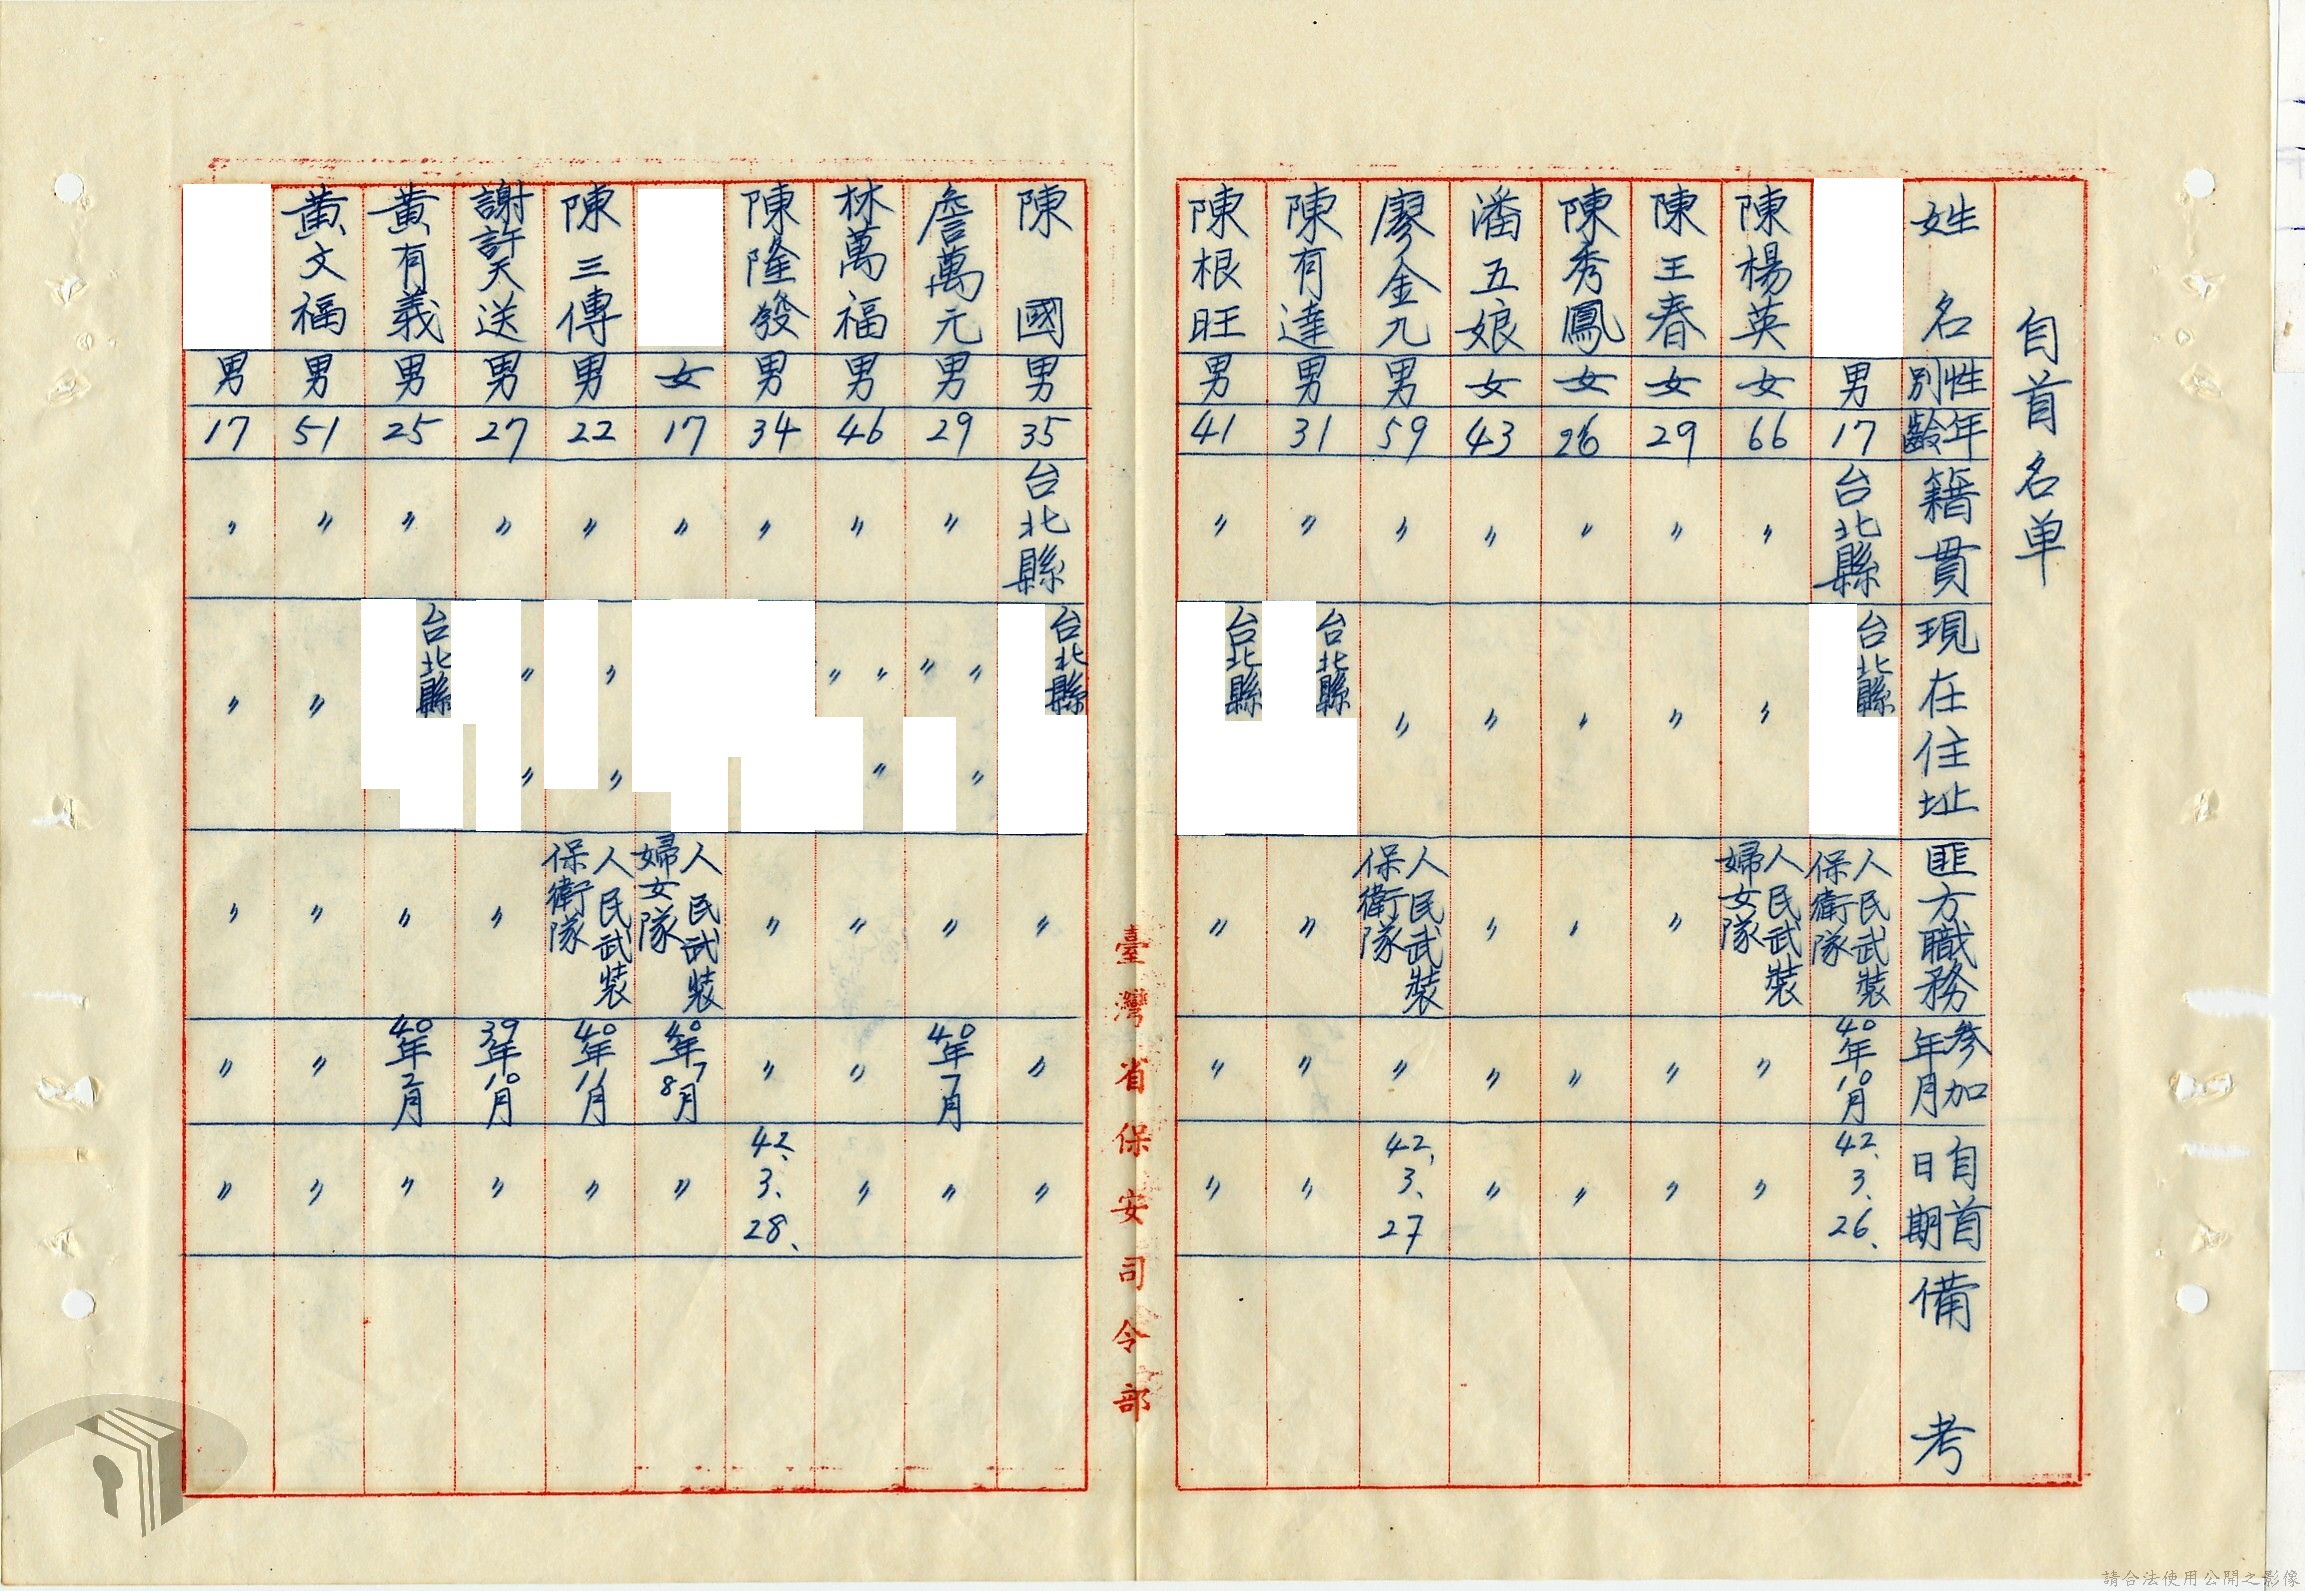 自首名单
姓名 性別 年齡 籍貫 現在住址 匪方職務 參加年月 自首日期 備考
男 17 台北縣 台北縣 人民武裝保衛隊 40年10月 42、3、26、
陳楊英 女 66 〃 〃 人民武裝婦女隊 〃 〃
陳王春 女 29 〃 〃 〃 〃 〃
陳秀鳳 女 26 〃 〃 〃 〃 〃
潘五娘 女 43 〃 〃 〃 〃 〃
廖金九 男 59 〃 〃 人民武裝保衛隊 〃 42、3、27
陳有達 男 31 〃 台北縣 〃 〃 〃
陳根旺 男 41 〃 台北縣 〃 〃 〃
臺灣省保安司令部
陳國 男 35 台北縣 台北縣 〃 〃 〃
詹萬元 男 29 〃 〃 〃 〃 〃 40年7月 〃
林萬福 男 46 〃 〃 〃 〃 〃 〃 〃
陳隆發 男 34 〃 〃 〃 42、3、28、
女 17 〃 人民武裝婦女隊 40年78月 〃
陳三傳 男 22 〃 〃 〃 人民武裝保衛隊 40年11月 〃
謝許天送 男 27 〃 〃 〃 〃 39年10月 〃
黃有義 男 25 〃 台北縣 〃 40年2月 〃
黃文福 男 51 〃 〃 〃 〃 〃
男 17 〃 〃 〃 〃 〃
請合法使用公開之影像